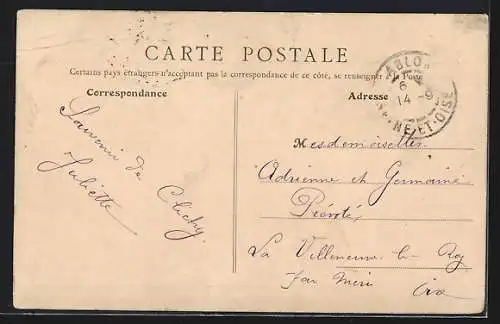 CARTE POSTALE
Certains pays étrangers n'acceptant pas la correspondance de ce côté, se renseigner à la Poste
Correspondance
Adresse
ABLO
6
14
NE-ET-OISE
Souvenir de Clichy.
Juliette
Mesdemoiselles
Adrienne et Germaine
Prévôté
La Villeneuve
par